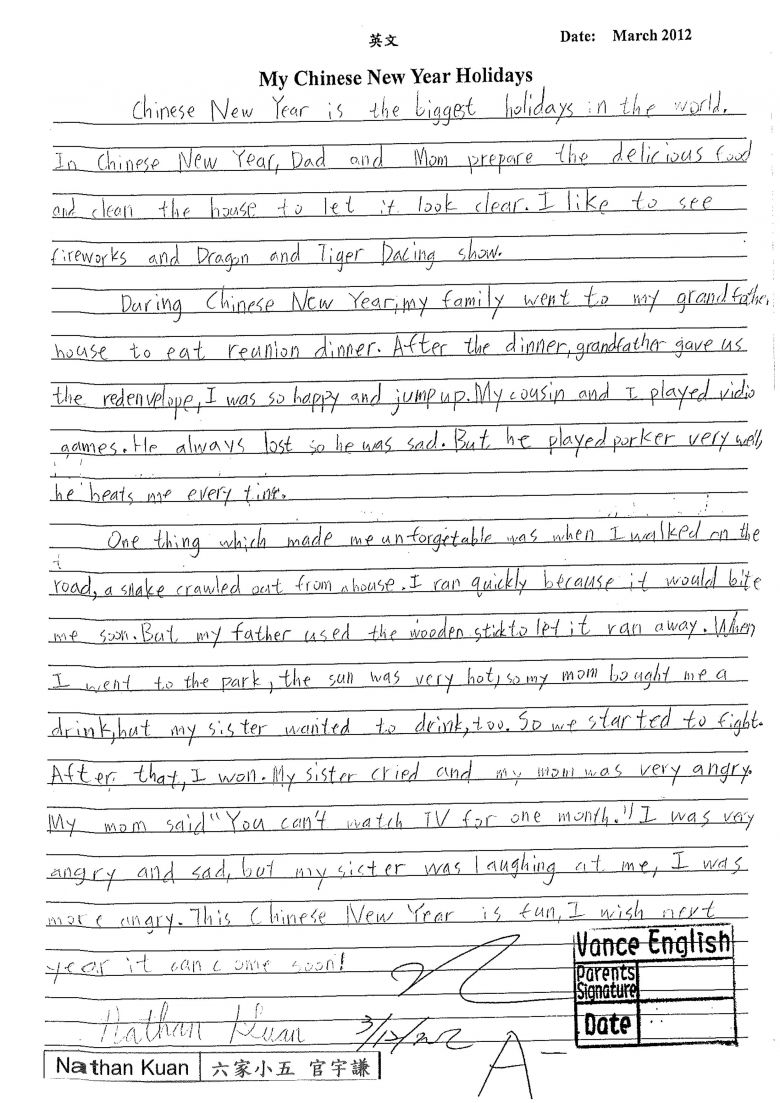 英文
Date: March 2012
My Chinese New Year Holidays
Chinese New Year is the biggest holidays in the world.
In Chinese New Year, Dad and Mom prepare the delicious food
and clean the house to let it look clear. I like to see
fireworks and Dragon and Tiger Dacing show.
During Chinese New Year, my family went to my grandfather
house to eat reunion dinner. After the dinner, grandfather gave us
the redenvelope, I was so happy and jump up. My cousin and I played vidio
games. He always lost so he was sad. But he played porker very well,
he beats me every time.
One thing which made me unforgetable was when I walked on the
road, a snake crawled out from a house. I ran quickly because it would bite
me soon. But my father used the wooden stick to let it ran away. When
I went to the park, the sun was very hot, so my mom bought me a
drink, but my sister wanted to drink, too. So we started to fight.
After that, I won. My sister cried and my mom was very angry.
My mom said "You can't watch TV for one month." I was very
angry and sad, but my sister was laughing at me, I was
more angry. This Chinese New Year is fun, I wish next
year it can come soon!
Nathan Kuan
A-
Vance English
Parents Signature
Date
Nathan Kuan 六家小五 官宇謙